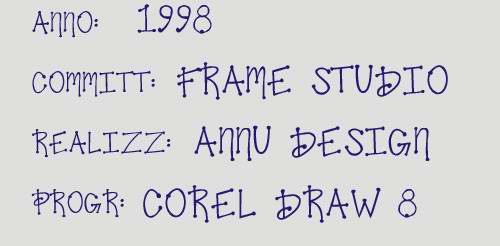 ANNO: 1998
COMMITT: FRAME STUDIO
REALIZZ: ANNU DESIGN
PROGR: COREL DRAW 8